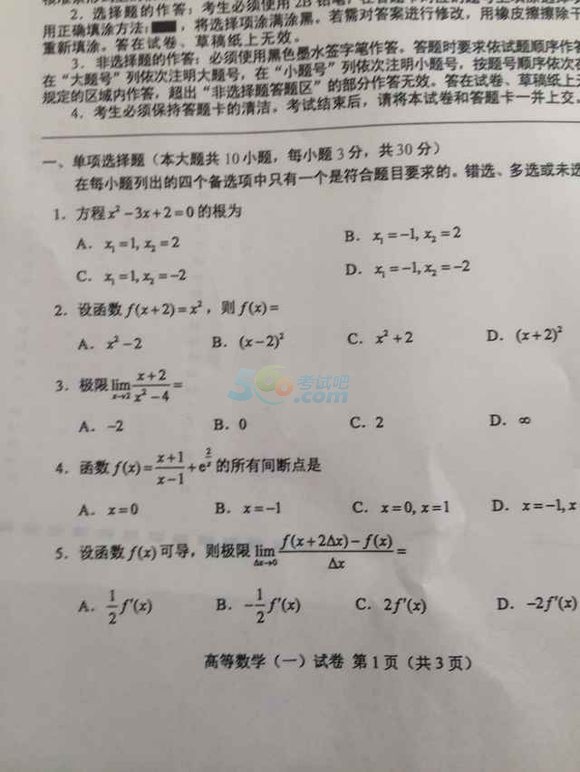 2. 选择题的作答：考生必须使用 2B 铅笔，
用正确填涂方法 ，将选择项涂满涂黑。若需对答案进行修改，用橡皮擦擦除干
重新填涂。答在试卷、草稿纸上无效。
3. 非选择题的作答：必须使用黑色墨水签字笔作答。答题时要求依试题顺序作答
在“大题号”列依次注明大题号，在“小题号”列依次注明小题号，按题号顺序依次
规定的区域内作答，超出“非选择题答题区”的部分作答无效。答在试卷、草稿纸上
4. 考生必须保持答题卡的清洁。考试结束后，请将本试卷和答题卡一并上交。
一、单项选择题（本大题共 10 小题，每小题 3 分，共 30 分）
在每小题列出的四个备选项中只有一个是符合题目要求的。错选、多选或未选
1. 方程 x²－3x＋2＝0 的根为
A. x₁＝1, x₂＝2 B. x₁＝－1, x₂＝2
C. x₁＝1, x₂＝－2 D. x₁＝－1, x₂＝－2
2. 设函数 f(x＋2)＝x²，则 f(x)＝
A. x²－2 B. (x－2)² C. x²＋2 D. (x＋2)²
3. 极限 lim x→2 (x＋2)/(x²－4)＝
考试吧 .com
A. －2 B. 0 C. 2 D. ∞
4. 函数 f(x)＝(x＋1)/(x－1)＋e^(2/x) 的所有间断点是
A. x＝0 B. x＝－1 C. x＝0, x＝1 D. x＝－1, x
5. 设函数 f(x) 可导，则极限 lim Δx→0 (f(x＋2Δx)－f(x))/Δx＝
A. 1/2 f′(x) B. －1/2 f′(x) C. 2f′(x) D. －2f′(x)
高等数学（一）试卷 第 1 页（共 3 页）